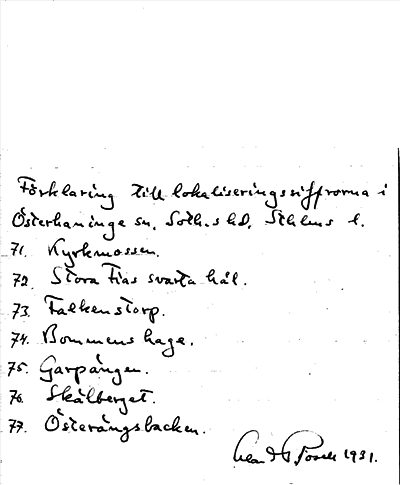 Förklaring till lokaliseringssiffrorna i
Österhaninge sn. Soth.s hd. Sthlms l.
71. Kyrkmossen.
72. Stora Fias svarta hål.
73. Falkenstorp.
74. Bommens hage.
75. Garpängen.
76. Skälberget.
77. Österängsbacken.
1931.